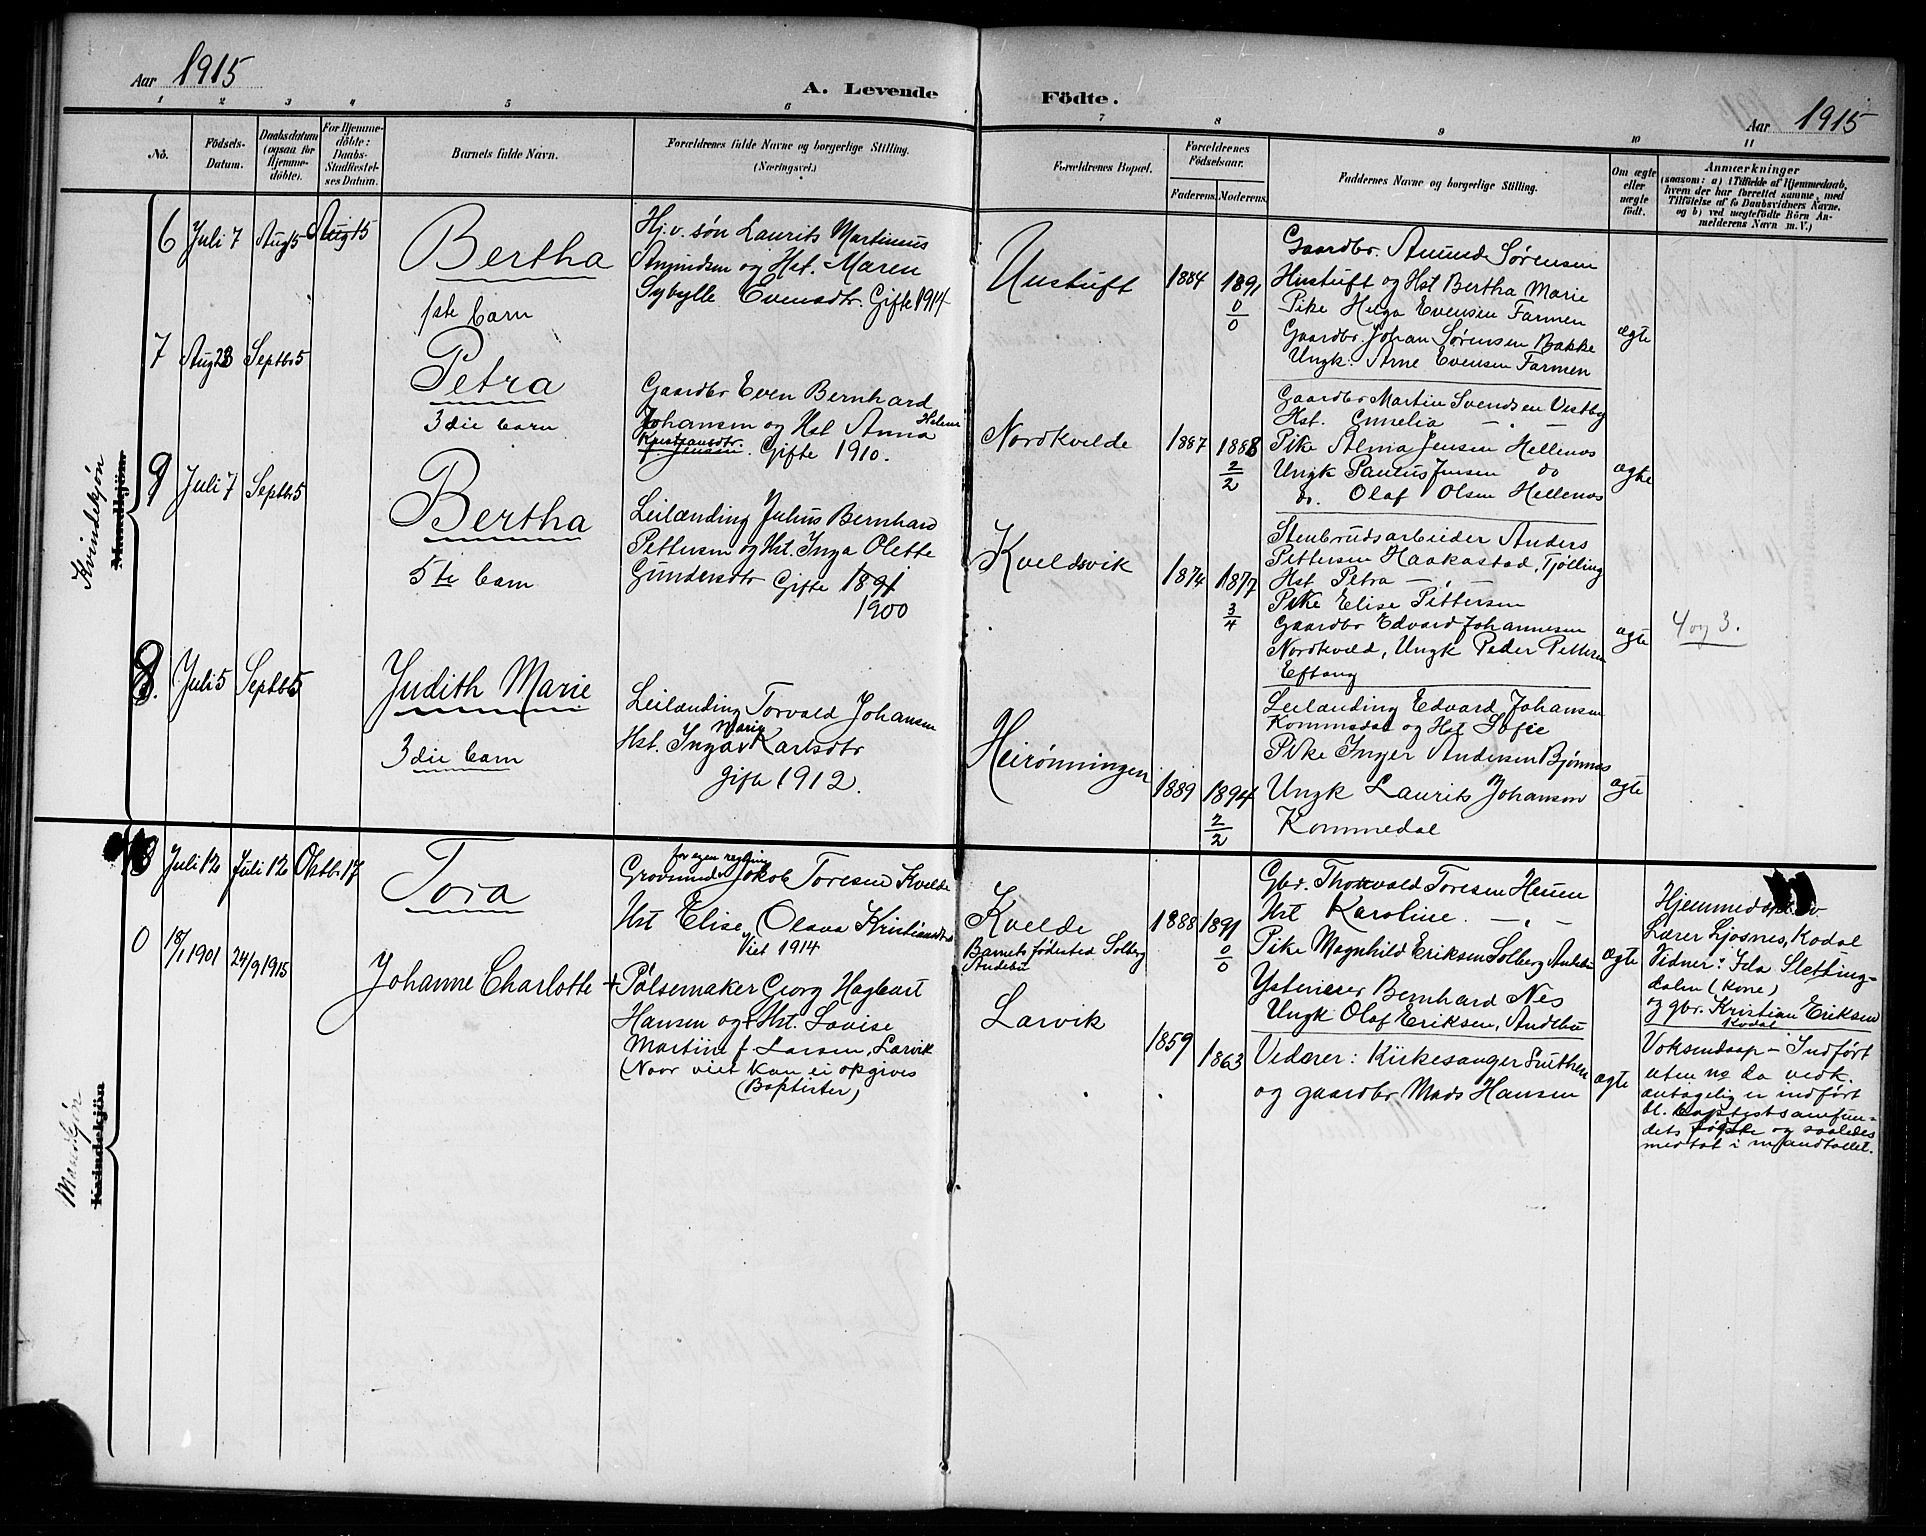 Aar 1915
A. Levende Födte.
Aar 1915
1 2 3 4 5 6 7 8 9 10 11
No.
Födsels-Datum.
Daabsdatum (ogsaa for Hjemme-döbte).
For Hjemme-döbte: Daabs-Stadfæstel-ses Datum.
Barnets fulde Navn.
Forældrenes fulde Navne og borgerlige Stilling.
(Næringsvei.)
Forældrenes Bopæl.
Forældrenes Födselsaar.
Faderens. Moderens.
Faddernes Navne og borgerlige Stilling.
Om ægte eller uægte født.
Anmærkninger
(saasom: a) i Tilfælde af Hjemmedaab,
hvem der har forrettet samme, med
Tilføielse af to Daabsvidners Navne,
og b) ved uegtefödte Börn An-
melderens Navn m. V.)
Kvindekjön
Mandkjön
6 Juli 7 Aug 15 Aug 15
Bertha
1ste barn
Hj.v. søn Laurits Martinius
Amundsen og Hst. Maren
Sybylle Evensdtr. Gifte 1914
1884 1891
0
0
Gaardbr. Amund Sørensen
og Hst Bertha Marie
Pike Helga Evensen Farmen
Gaardbr. Johan Sørensen Bakke
Ungk. Arne Evensen Farmen
ægte
7 Aug 23 Septbr 5
Petra
3die barn
Gaardbr Even Bernhard
Johansen og Hst Anna Helene
Jensen. Gifte 1910.
Nordkvelde
1887 1888
2
2
Gaardbr Martin Svendsen Vestby
Hst. - " -
Pike Alma Jensen Hellenes
Ungk Paulus Jensen do
do. Olaf Olsen Hellenes
ægte
9 Juli 7 Septbr 5
Bertha
5te barn
Leilænding Julius Bernhard
Pettersen og Hst. Inga Olette
Gundersdtr Gifte 1891
1900
Kveldsvik
1874 1877
3
4
Stenbrudsarbeider Anders
Pettersen Haakastad, Tjölling
Hst Petra - " -
Pike Elise Pettersen
Gaardbr Edvard Johannesen
Nordkveld, Ungk Peder Pettersen
Eftang
ægte
4 og 3.
8. Juli 5 Septbr 5
Judith Marie
3die barn
Leilænding Torvald Johansen
Hst. Inga Marie Karlsdtr
gifte 1912.
Heirønningen
1889 1894
2
2
Leilænding Edvard Johansen
Kommedal og Hst Sofie
Pike Inger Andersen Bjønnes
Ungk Laurits Johanson
Kommedal
ægte
Mandkjön
Kvindekjön
Juli 12 Juli 12 Oktbr 17
Tora
for egen regning
Grovsmed Jakob Toresen Kvelde
Hst Elise Olava Kristiansdtr
Viet 1914
Kvelde
Barnets fødested Solberg
Andebu
1888 1891
0
0
Gbr. Thorvald Toresen Heum
Hst Karoline. - " -
Pike Magnhild Eriksen Solberg Andebu
Bernhard Nes
Ungk Olaf Eriksen, Andebu
ægte
Hjemmedøpt av
Lærer Ljosnes, Kodal
Vidner: Ida Sletting-
dalen (kone)
og gbr. Kristian Eriksen
Kodal
0 18/1 1901 24/9 1915
Johanne Charlotte
+ Pølsemaker Georg Hagbart
Hansen og Hst. Lovise
Martine f. Larsen, Larvik
(Naar viet kan ei opgives
(Baptister)
Larvik
1859 1863
Vidner: Kirkesanger
og gaardbr Mads Hansen
ægte
Voksendaap - Indført
uten no da vedk.
antagelig er indført
bl. baptistsamfun-
dets fødte og saaledes
medtat i mandtallet.